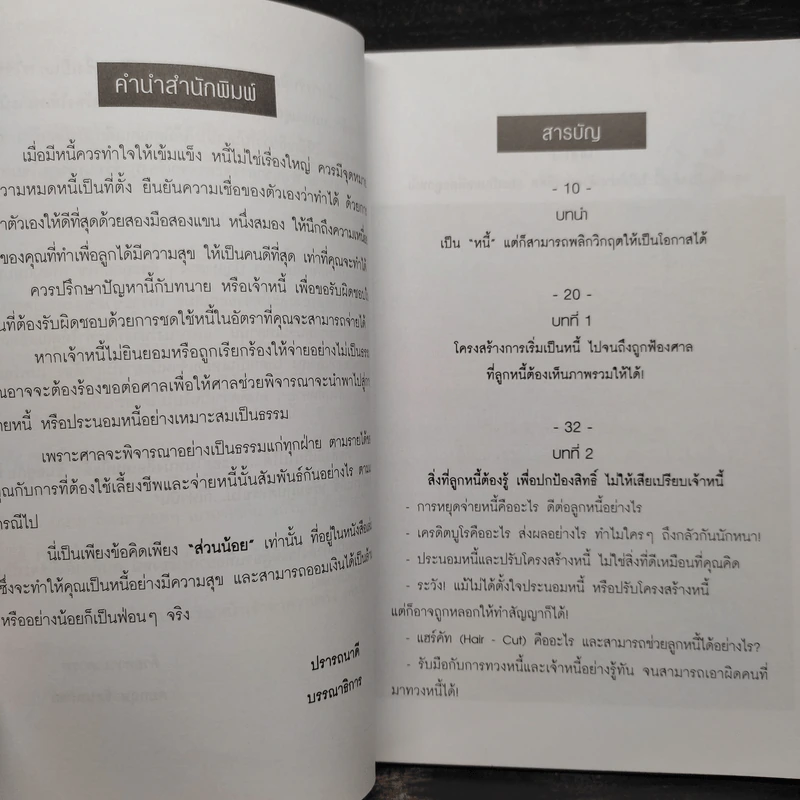 คำนำสำนักพิมพ์
เมื่อมีหนี้ควรทำใจให้เข้มแข็ง หนี้ไม่ใช่เรื่องใหญ่ ควรมีจุดหมาย
ความหมดหนี้เป็นที่ตั้ง ยืนยันความเชื่อของตัวเองว่าทำได้
ตัวเองให้ดีที่สุดด้วยสองมือสองแขน หนึ่งสมอง ให้นึกถึงความเหนื่อย
ของคุณที่ทำเพื่อลูกได้มีความสุข ให้เป็นคนดีที่สุด เท่าที่คุณจะทำได้
ควรปรึกษาปัญหานี้กับทนาย หรือเจ้าหนี้ เพื่อขอรับผิดชอบ
ที่ต้องรับผิดชอบด้วยการชดใช้หนี้ในอัตราที่คุณจะสามารถจ่ายได้
หากเจ้าหนี้ไม่ยินยอมหรือถูกเรียกร้องให้จ่ายอย่างไม่เป็นธรรม
ณอาจจะต้องร้องขอต่อศาลเพื่อให้ศาลช่วยพิจารณาจะนำพาไปสู่
ายหนี้ หรือประนอมหนี้อย่างเหมาะสมเป็นธรรม
เพราะศาลจะพิจารณาอย่างเป็นธรรมแก่ทุกฝ่าย ตามรายได้ข
คุณกับการที่ต้องใช้เลี้ยงชีพและจ่ายหนี้นั้นสัมพันธ์กันอย่างไร ตาม
กรณีไป
นี่เป็นเพียงข้อคิดเพียง "ส่วนน้อย" เท่านั้น ที่อยู่ในหนังสือ
ซึ่งจะทำให้คุณเป็นหนี้อย่างมีความสุข และสามารถออมเงินได้เป็น
หรืออย่างน้อยก็เป็นฟ่อนๆ จริง
ปรารถนาดี
บรรณาธิการ
สารบัญ
- 10 -
บทนำ
เป็น "หนี้" แต่ก็สามารถพลิกวิกฤตให้เป็นโอกาสได้
- 20 -
บทที่ 1
โครงสร้างการเริ่มเป็นหนี้ ไปจนถึงถูกฟ้องศาล
ที่ลูกหนี้ต้องเห็นภาพรวมให้ได้!
- 32 -
บทที่ 2
สิ่งที่ลูกหนี้ต้องรู้ เพื่อปกป้องสิทธิ์ ไม่ให้เสียเปรียบเจ้าหนี้
- การหยุดจ่ายหนี้คืออะไร ดีต่อลูกหนี้อย่างไร
- เครดิตบูโรคืออะไร ส่งผลอย่างไร ทำไมใครๆ ถึงกลัวกันนักหนา!
- ประนอมหนี้และปรับโครงสร้างหนี้ ไม่ใช่สิ่งที่ดีเหมือนที่คุณคิด
- ระวัง! แม้ไม่ได้ตั้งใจประนอมหนี้ หรือปรับโครงสร้างหนี้
แต่ก็อาจถูกหลอกให้ทำสัญญาก็ได้!
- แฮร์คัท (Hair - Cut) คืออะไร และสามารถช่วยลูกหนี้ได้อย่างไร?
- รับมือกับการทวงหนี้และเจ้าหนี้อย่างรู้ทัน จนสามารถเอาผิดคนที่
มาทวงหนี้ได้!